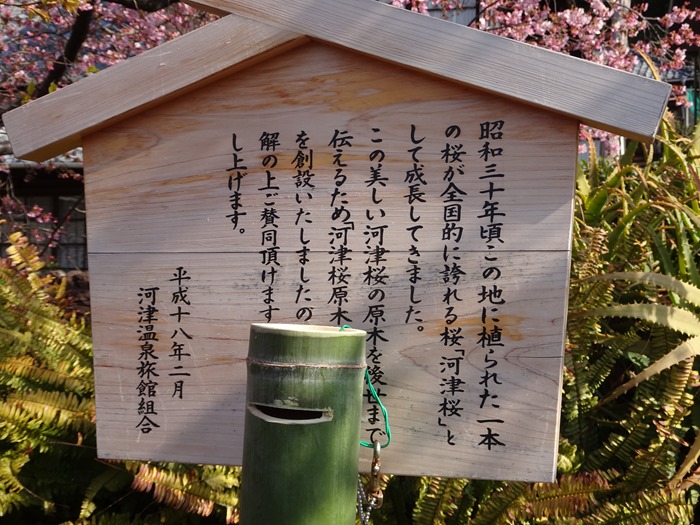 昭和三十年頃この地に植られた一本
の桜が全国的に誇れる桜「河津桜」と
して成長してきました。
この美しい河津桜の原木を後世まで
伝えるため「河津桜原木
を創設いたしましたの
解の上ご賛同頂けます
し上げます。
平成十八年二月
河津温泉旅館組合